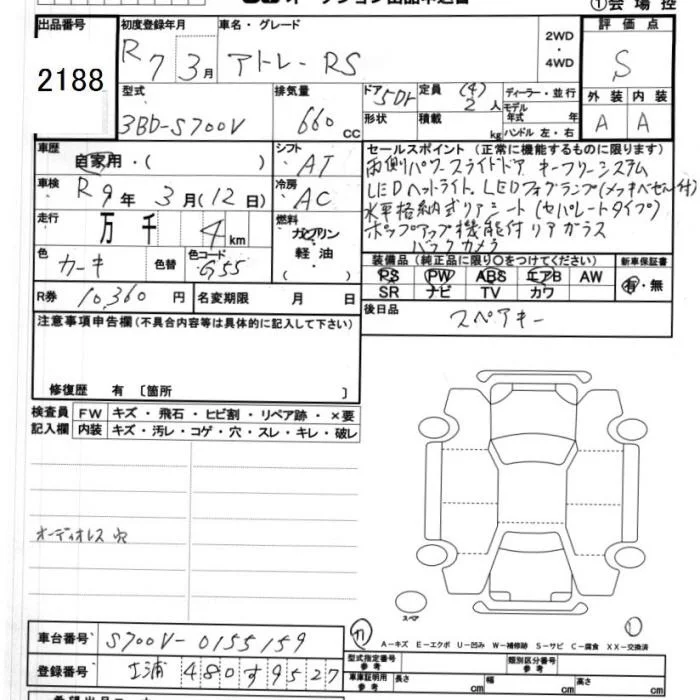 ①会場控
出品番号 初度登録年月 車名・グレード 評価点
2188
R 7 3月 アトレーRS
2WD
・
4WD
S
型式 排気量 ドア 5Dr 定員 (4) 2人 ディーラー・並行
モデル年式 年
外装 内装
3BD-S700V 660cc 形状 積載 kg ハンドル 左・右
A A
車歴 自家用・( ) シフト AT
セールスポイント(正常に機能するものに限ります)
両側パワースライドドア キーフリーシステム
LEDヘッドライト、LEDフォグランプ(メッキベゼル付)
水平格納式リアシート(セパレートタイプ)
ポップアップ機能付リアガラス
バックカメラ
車検 R9年 3月(12日) 冷房 AC
走行 万 千 4km 燃料 ガソリン
軽油
( )
色 カーキ 色替 色コード G55
R券 10,360円 名変期限 月 日
装備品(純正品に限り○をつけてください) 新車保証書
PS PW ABS エアB AW 有・無
SR ナビ TV カワ
後日品 スペアキー
注意事項申告欄(不具合内容等は具体的に記入して下さい)
修復歴 有 〔箇所 〕
検査員記入欄 FW キズ・飛石・ヒビ割・リペア跡・×要
内装 キズ・汚レ・コゲ・穴・スレ・キレ・破レ
オーディオレス穴
スペア
A-キズ E-エクボ U-凹み W-補修跡 S-サビ C-腐食 XX-交換済
車台番号 S700V-0155159
登録番号 土浦 480す9527
型式指定番号 参考 類別区分番号 参考
車庫証明用 参考 長さ cm 幅 cm 高さ cm